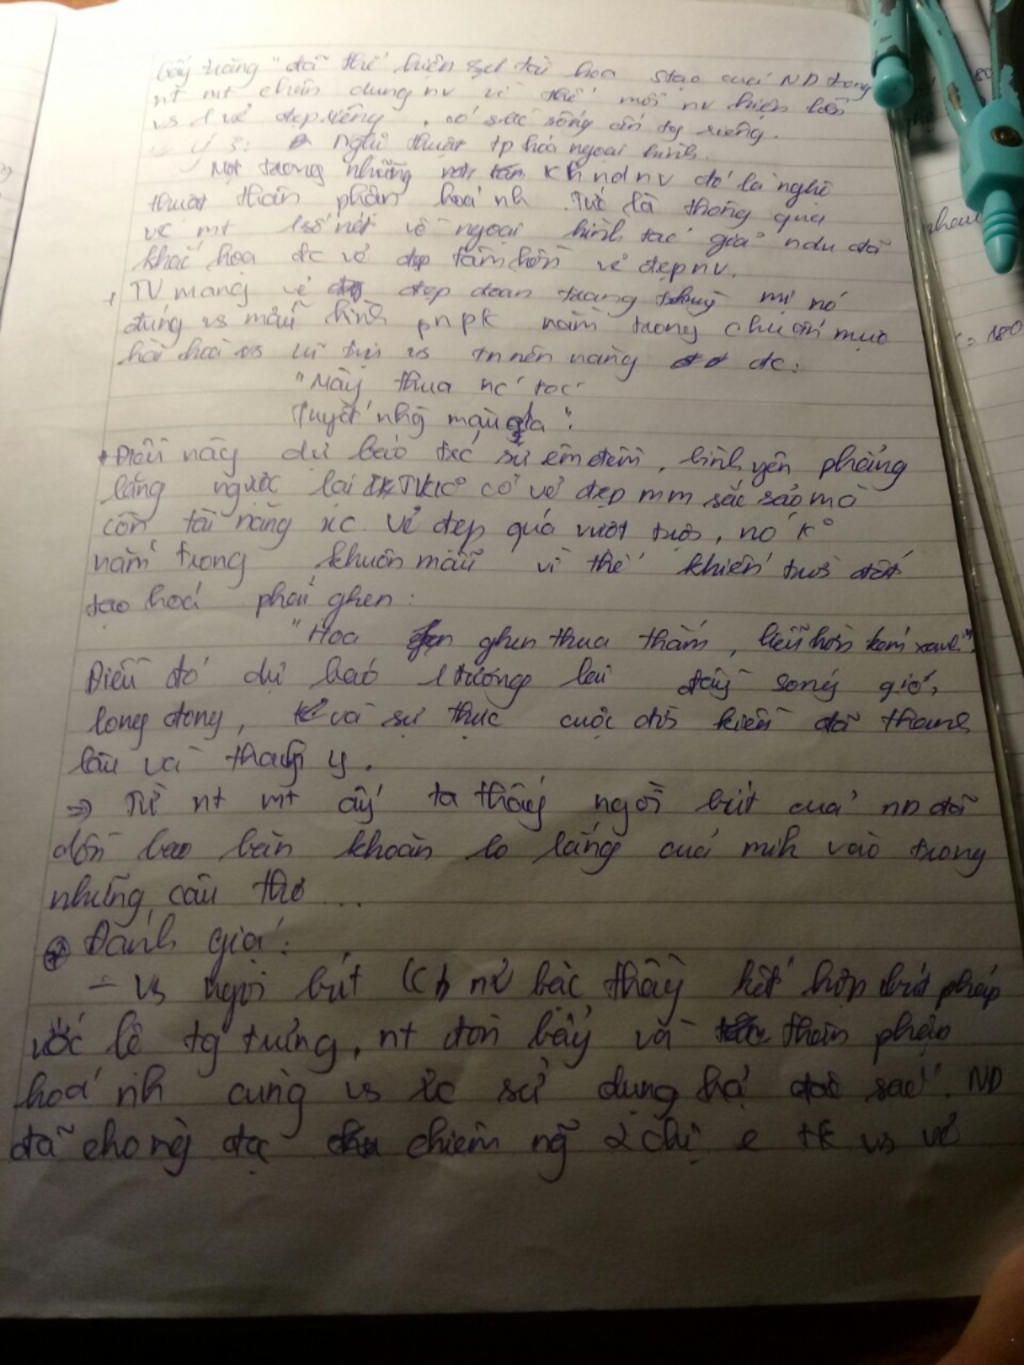 bẩy trăng" đã thể hiện sự tài hoa stạo của ND trong
nt mt chân dung nv vì thế mỗi nv hiện lên
vs 1 vẻ đẹp riêng, có sức sống
ý 3: Nghệ thuật tp hóa ngoại hình.
Một trong những khndnv đó là nghệ
thuật thân phận hoá nh. Tức là thông qua
việc mt 1 số nét về ngoại hình tác giả ndu đã
khắc họa đc vẻ đẹp tâm hồn vẻ đẹp nv.
+ TV mang vẻ đẹp đoan trang thuỳ mị nó
đúng vs mẫu hình pnpk nằm trong chuẩn mực
hài hoà vs vs tn nên nàng đc:
"Mây thua nc tóc
Tuyết nhg màu da".
+ Điều này dự báo đc sự êm đềm, bình yên phẳng
lặng ngược lại TK k° có vẻ đẹp mm sắc sảo mà
còn tài năng xc vẻ đẹp quá vượt trội, nó k°
nằm trong khuôn mẫu vì thế khiến trời đất
tạo hoá phải ghen:
"Hoa ghen thua thắm, liễu hờn kém xanh".
Điều đó dự báo 1 tương lai đầy sóng gió,
long đong, và sự thực cuộc đời kiều đã thanh
lâu và thanh y.
=> Từ nt mt ấy ta thấy ngòi bút của nd đã
dồn bao băn khoăn lo lắng của mìh vào trong
những câu thơ ...
Đánh giá:
- Vs ngòi bút bậc thầy kết hợp bút pháp
ước lệ tg trưng, nt đòn bẩy và thân phận
hoá nh cùng vs vc sử dụng hạ sắc. ND
đã cho ng đọc chiêm ng 2 chị e tk vs vẻ